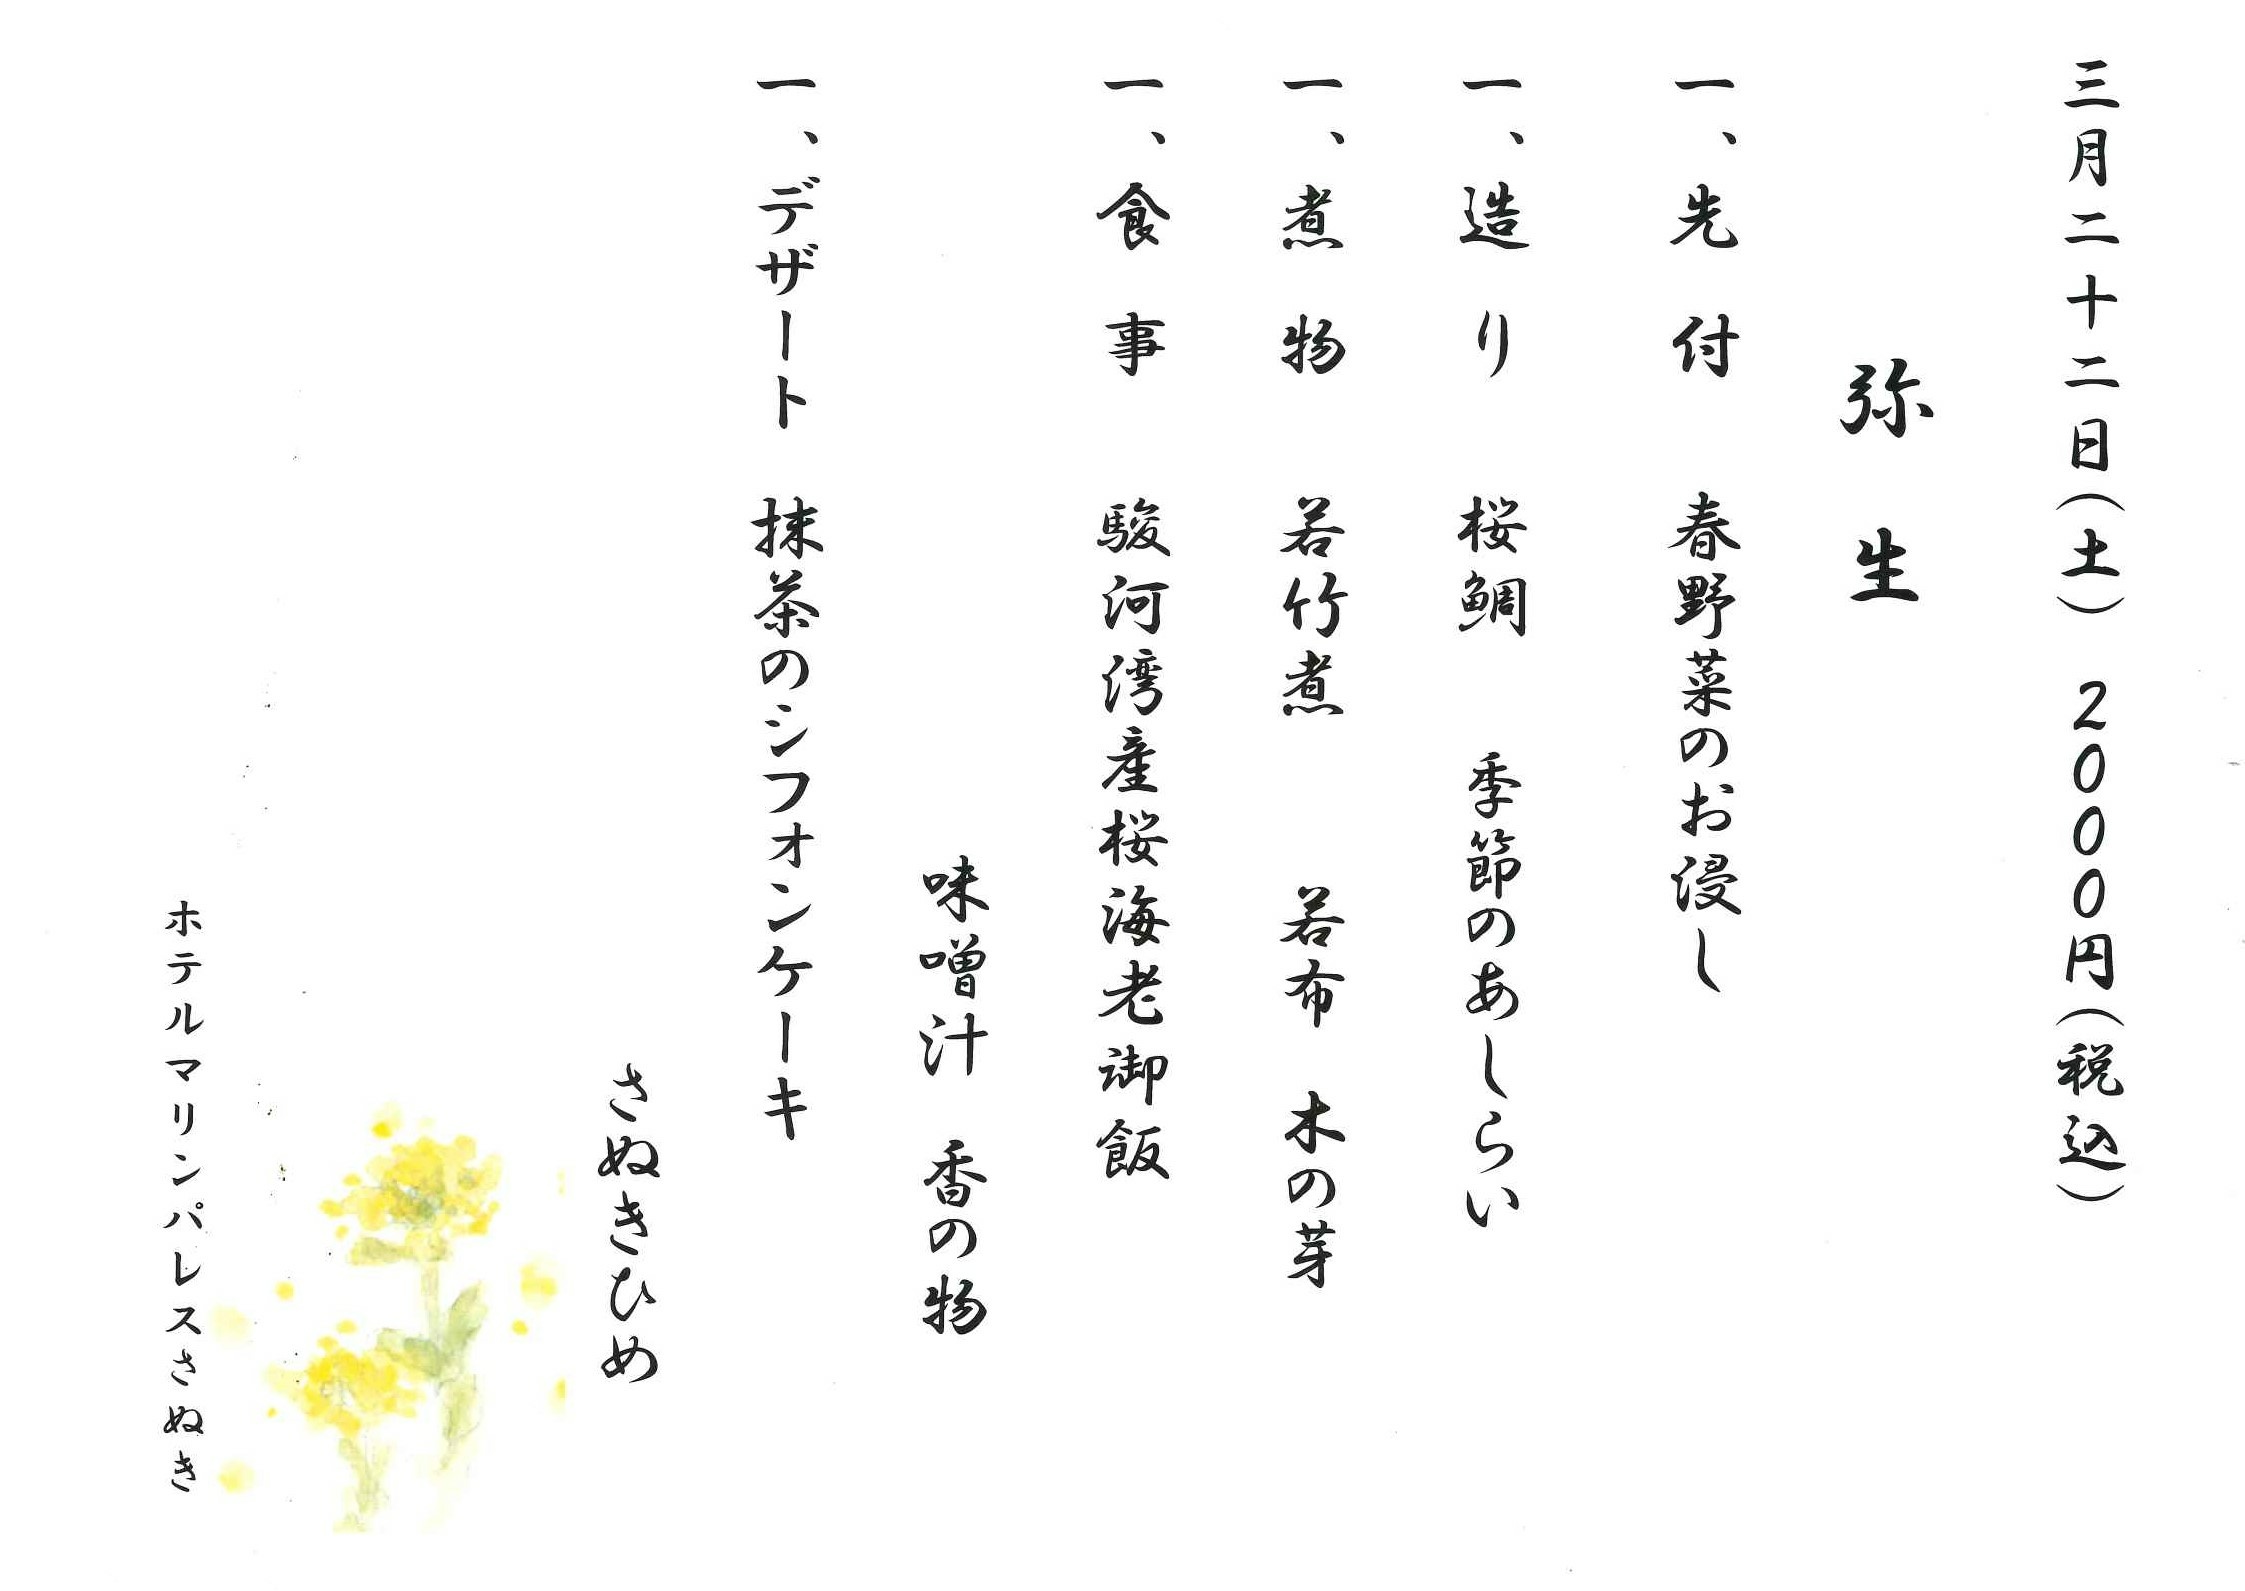 三月二十二日(土) 2000円(税込)
弥生
一、先付 春野菜のお浸し
一、造り 桜鯛 季節のあしらい
一、煮物 若竹煮 若布 木の芽
一、食事 駿河湾産桜海老御飯
味噌汁 香の物
一、デザート 抹茶のシフォンケーキ
さぬきひめ
ホテルマリンパレスさぬき